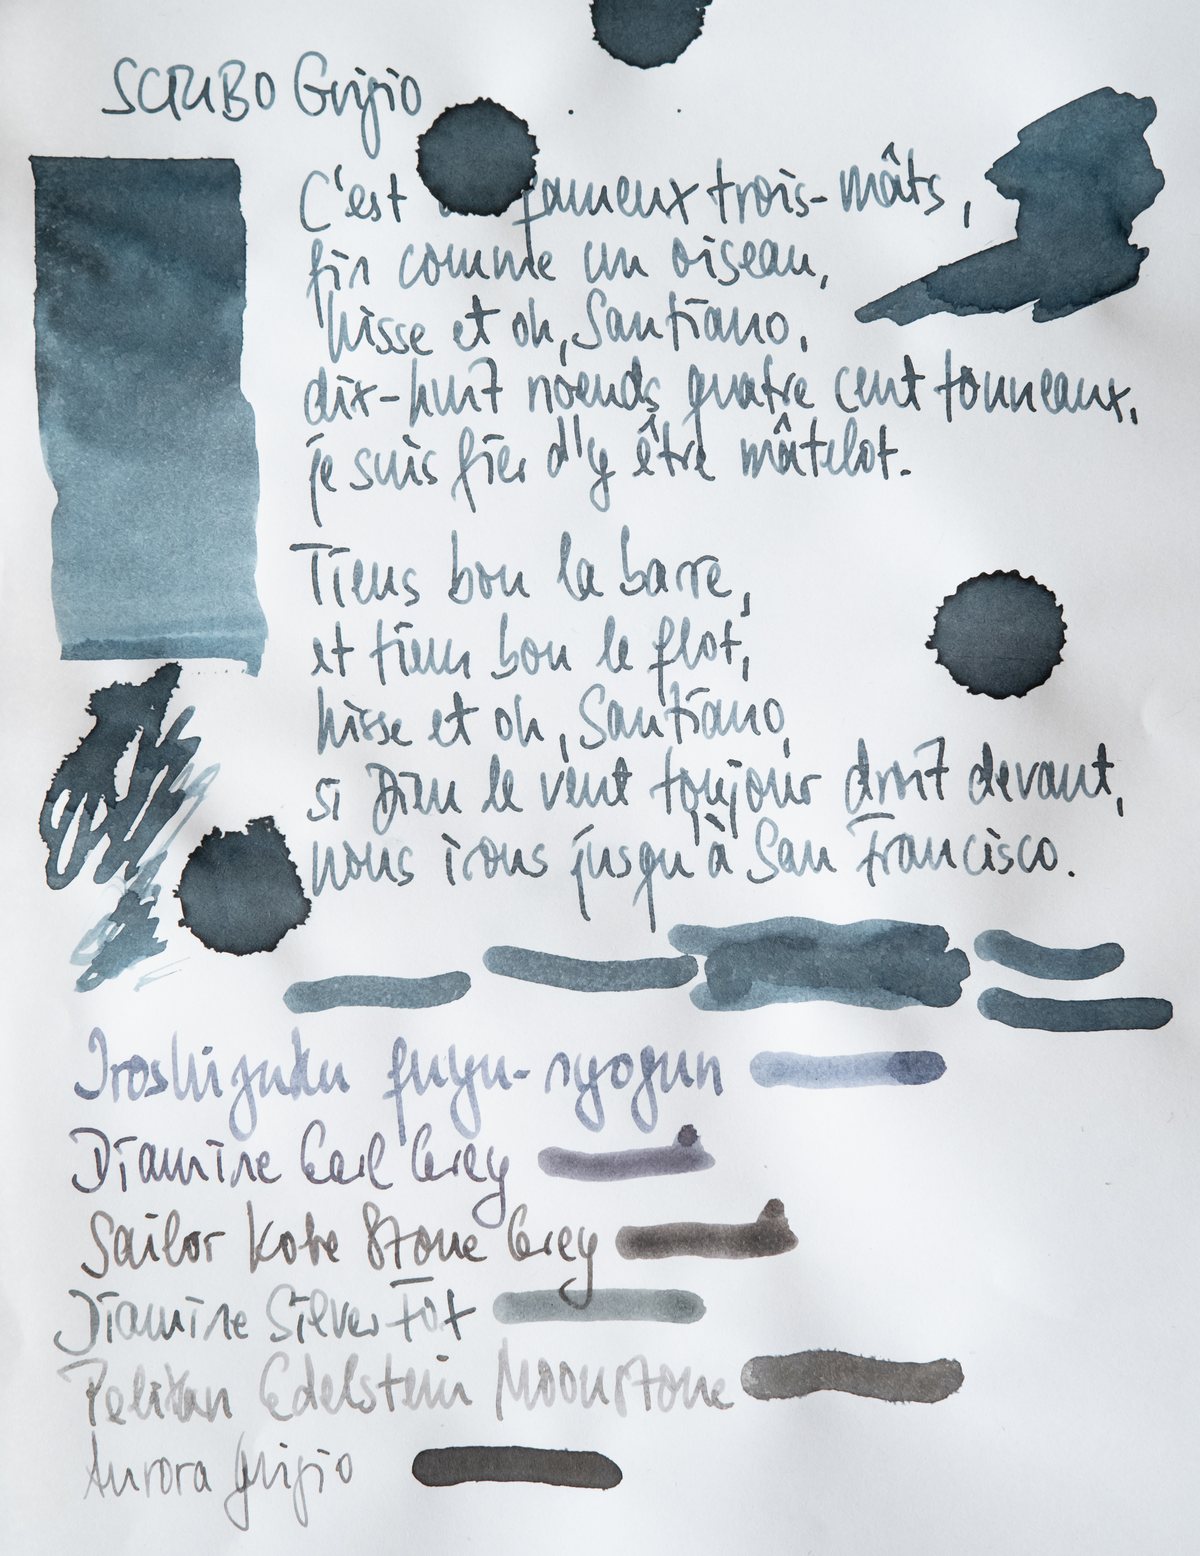 SCRIBO Grigio
C'est fameux trois-mâts,
fin comme un oiseau,
hisse et oh, Santiano,
dix-huit nœuds quatre cent tonneaux,
je suis fier d'y être mâtelot.
Tiens bon la barre,
et tiens bon le flot,
hisse et oh, Santiano,
si Dieu le veut toujour droit devant,
nous irons jusqu'à San Francisco.
Iroshizuku fuyu-syogun
Diamine Earl Grey
Sailor Kobe Stone Grey
Diamine Silver Fox
Pelikan Edelstein Moonstone
Aurora Grigio